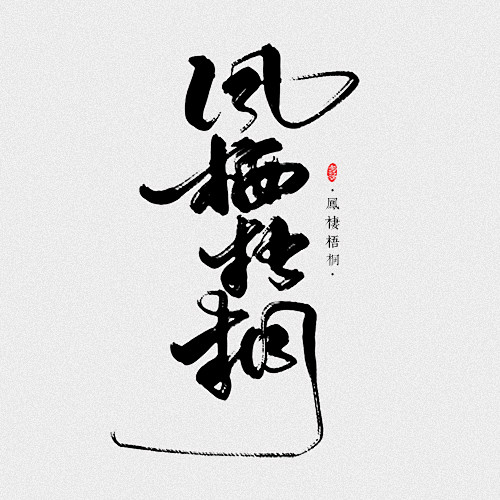 凤栖梧桐
·鳳棲梧桐·